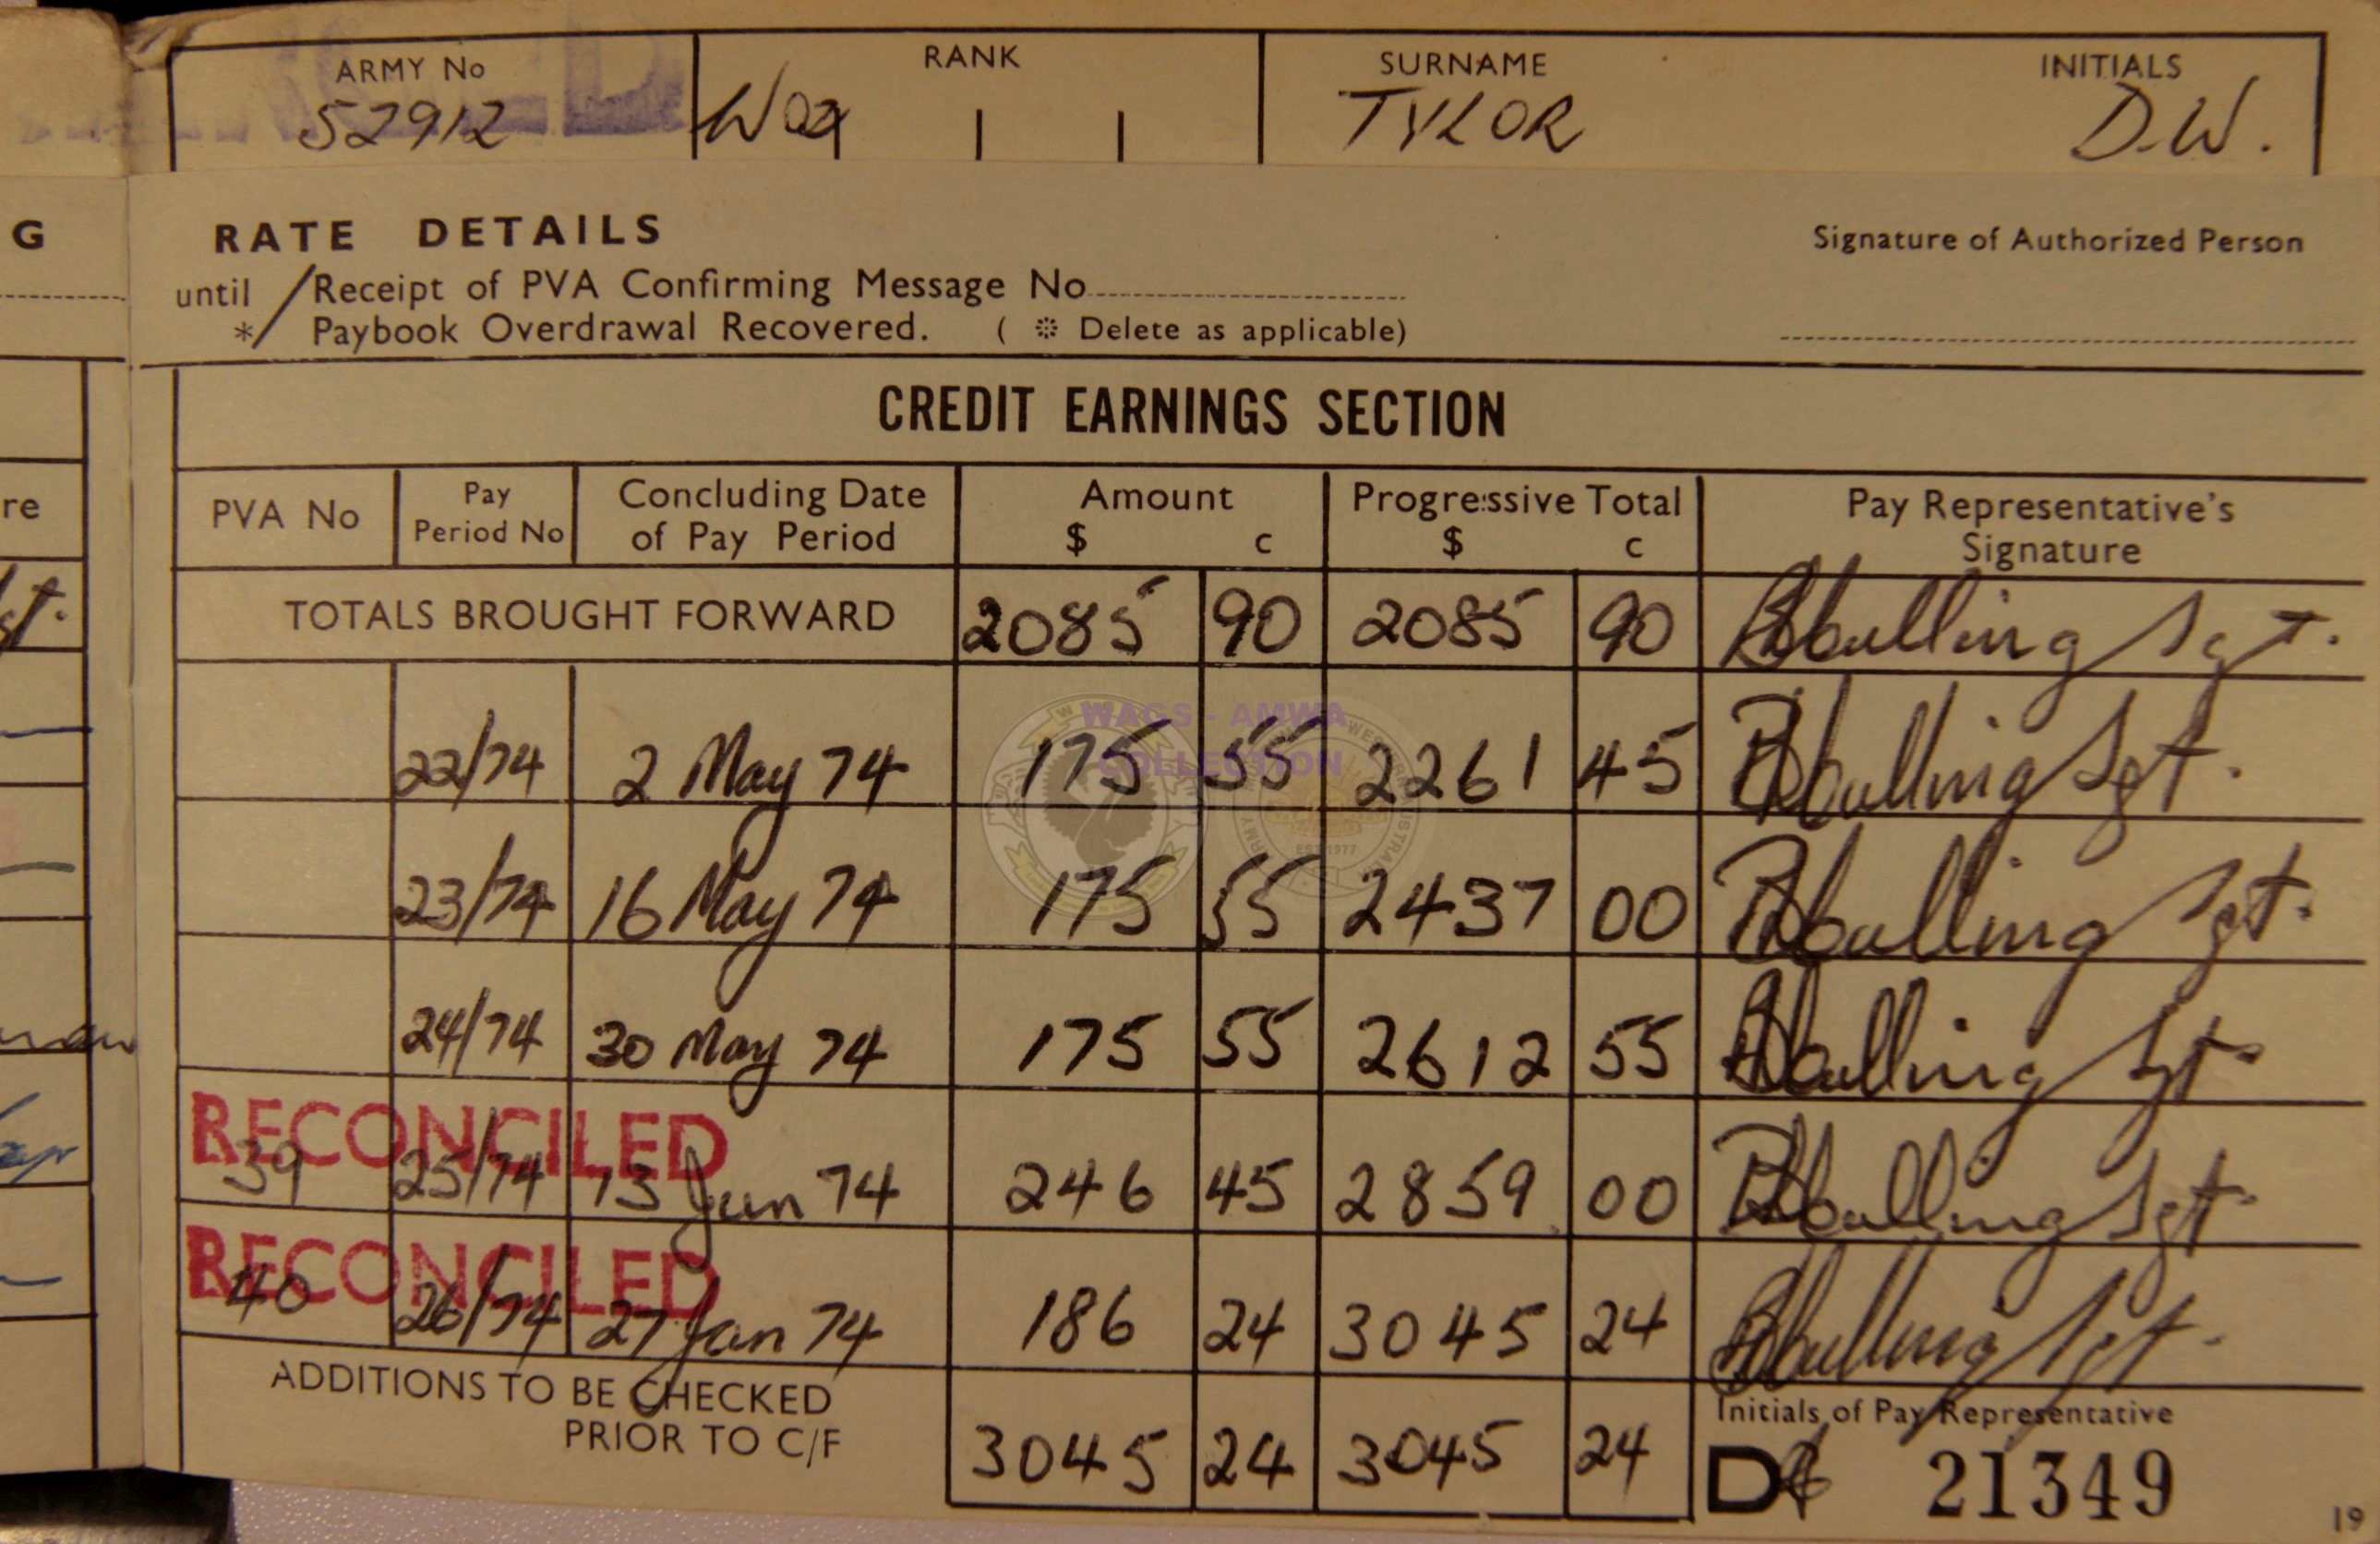 ARMY No RANK SURNAME INITIALS
52912 WO2 TYLOR D.W.
G
RATE DETAILS
Signature of Authorized Person
until / Receipt of PVA Confirming Message No
* / Paybook Overdrawal Recovered. ( * Delete as applicable)
CREDIT EARNINGS SECTION
re
PVA No Pay Period No Concluding Date of Pay Period Amount $ c Progressive Total $ c Pay Representative's Signature
TOTALS BROUGHT FORWARD 2085 90 2085 90 Sgt.
WAGS - AMWA
COLLECTION
EST 1977
22/74 2 May 74 175 55 2261 45 Sgt.
23/74 16 May 74 175 55 2437 00 Sgt.
24/74 30 May 74 175 55 2612 55 Sgt
RECONCILED
39 25/74 13 Jun 74 246 45 2859 00 Sgt
RECONCILED
40 26/74 27 Jun 74 186 24 3045 24 Sgt.
ADDITIONS TO BE CHECKED
PRIOR TO C/F
3045 24 3045 24
Initials of Pay Representative
21349
19